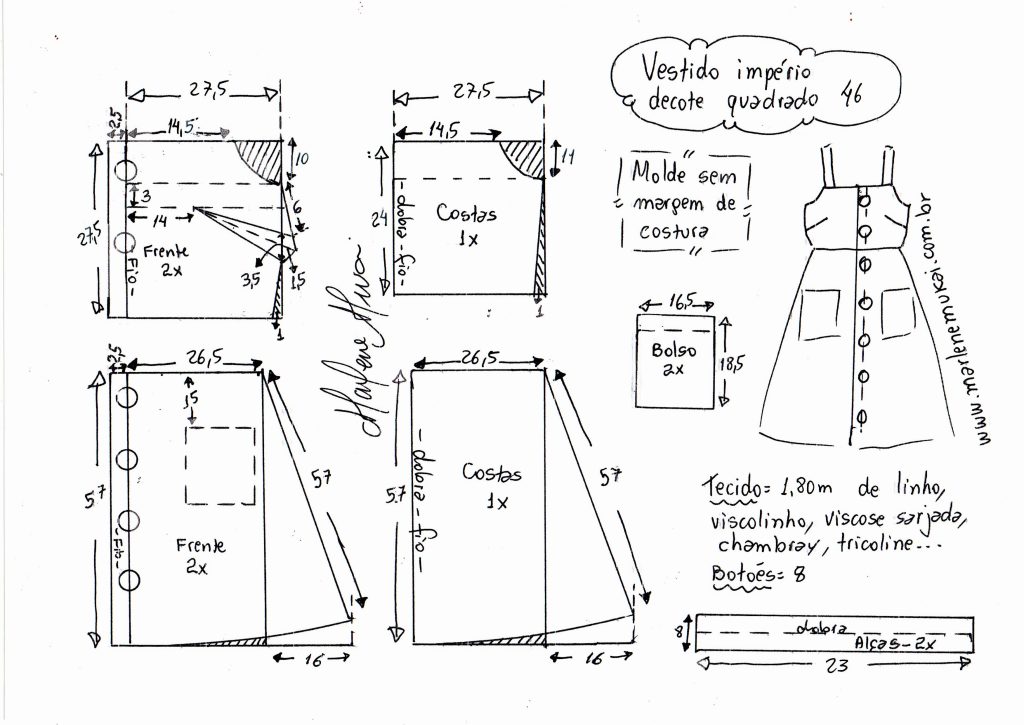 Vestido império
decote quadrado 46
27,5
2,5
14,5
10
27,5
3
14
6
3,5
1,5
Frente
2x
-Fio-
1
27,5
14,5
11
24
- dobra - fio -
Costas
1x
1
Molde sem
margem de
costura
16,5
Bolso
2x
18,5
www.marlenemukai.com.br
Marlene Mukai
2,5
26,5
15
57
57
Frente
2x
-Fio-
16
26,5
57
57
- dobra - fio -
Costas
1x
16
Tecido= 1,80m de linho,
viscolinho, viscose sarjada,
chambray, tricoline...
Botões= 8
8
dobra
Alças-2x
23